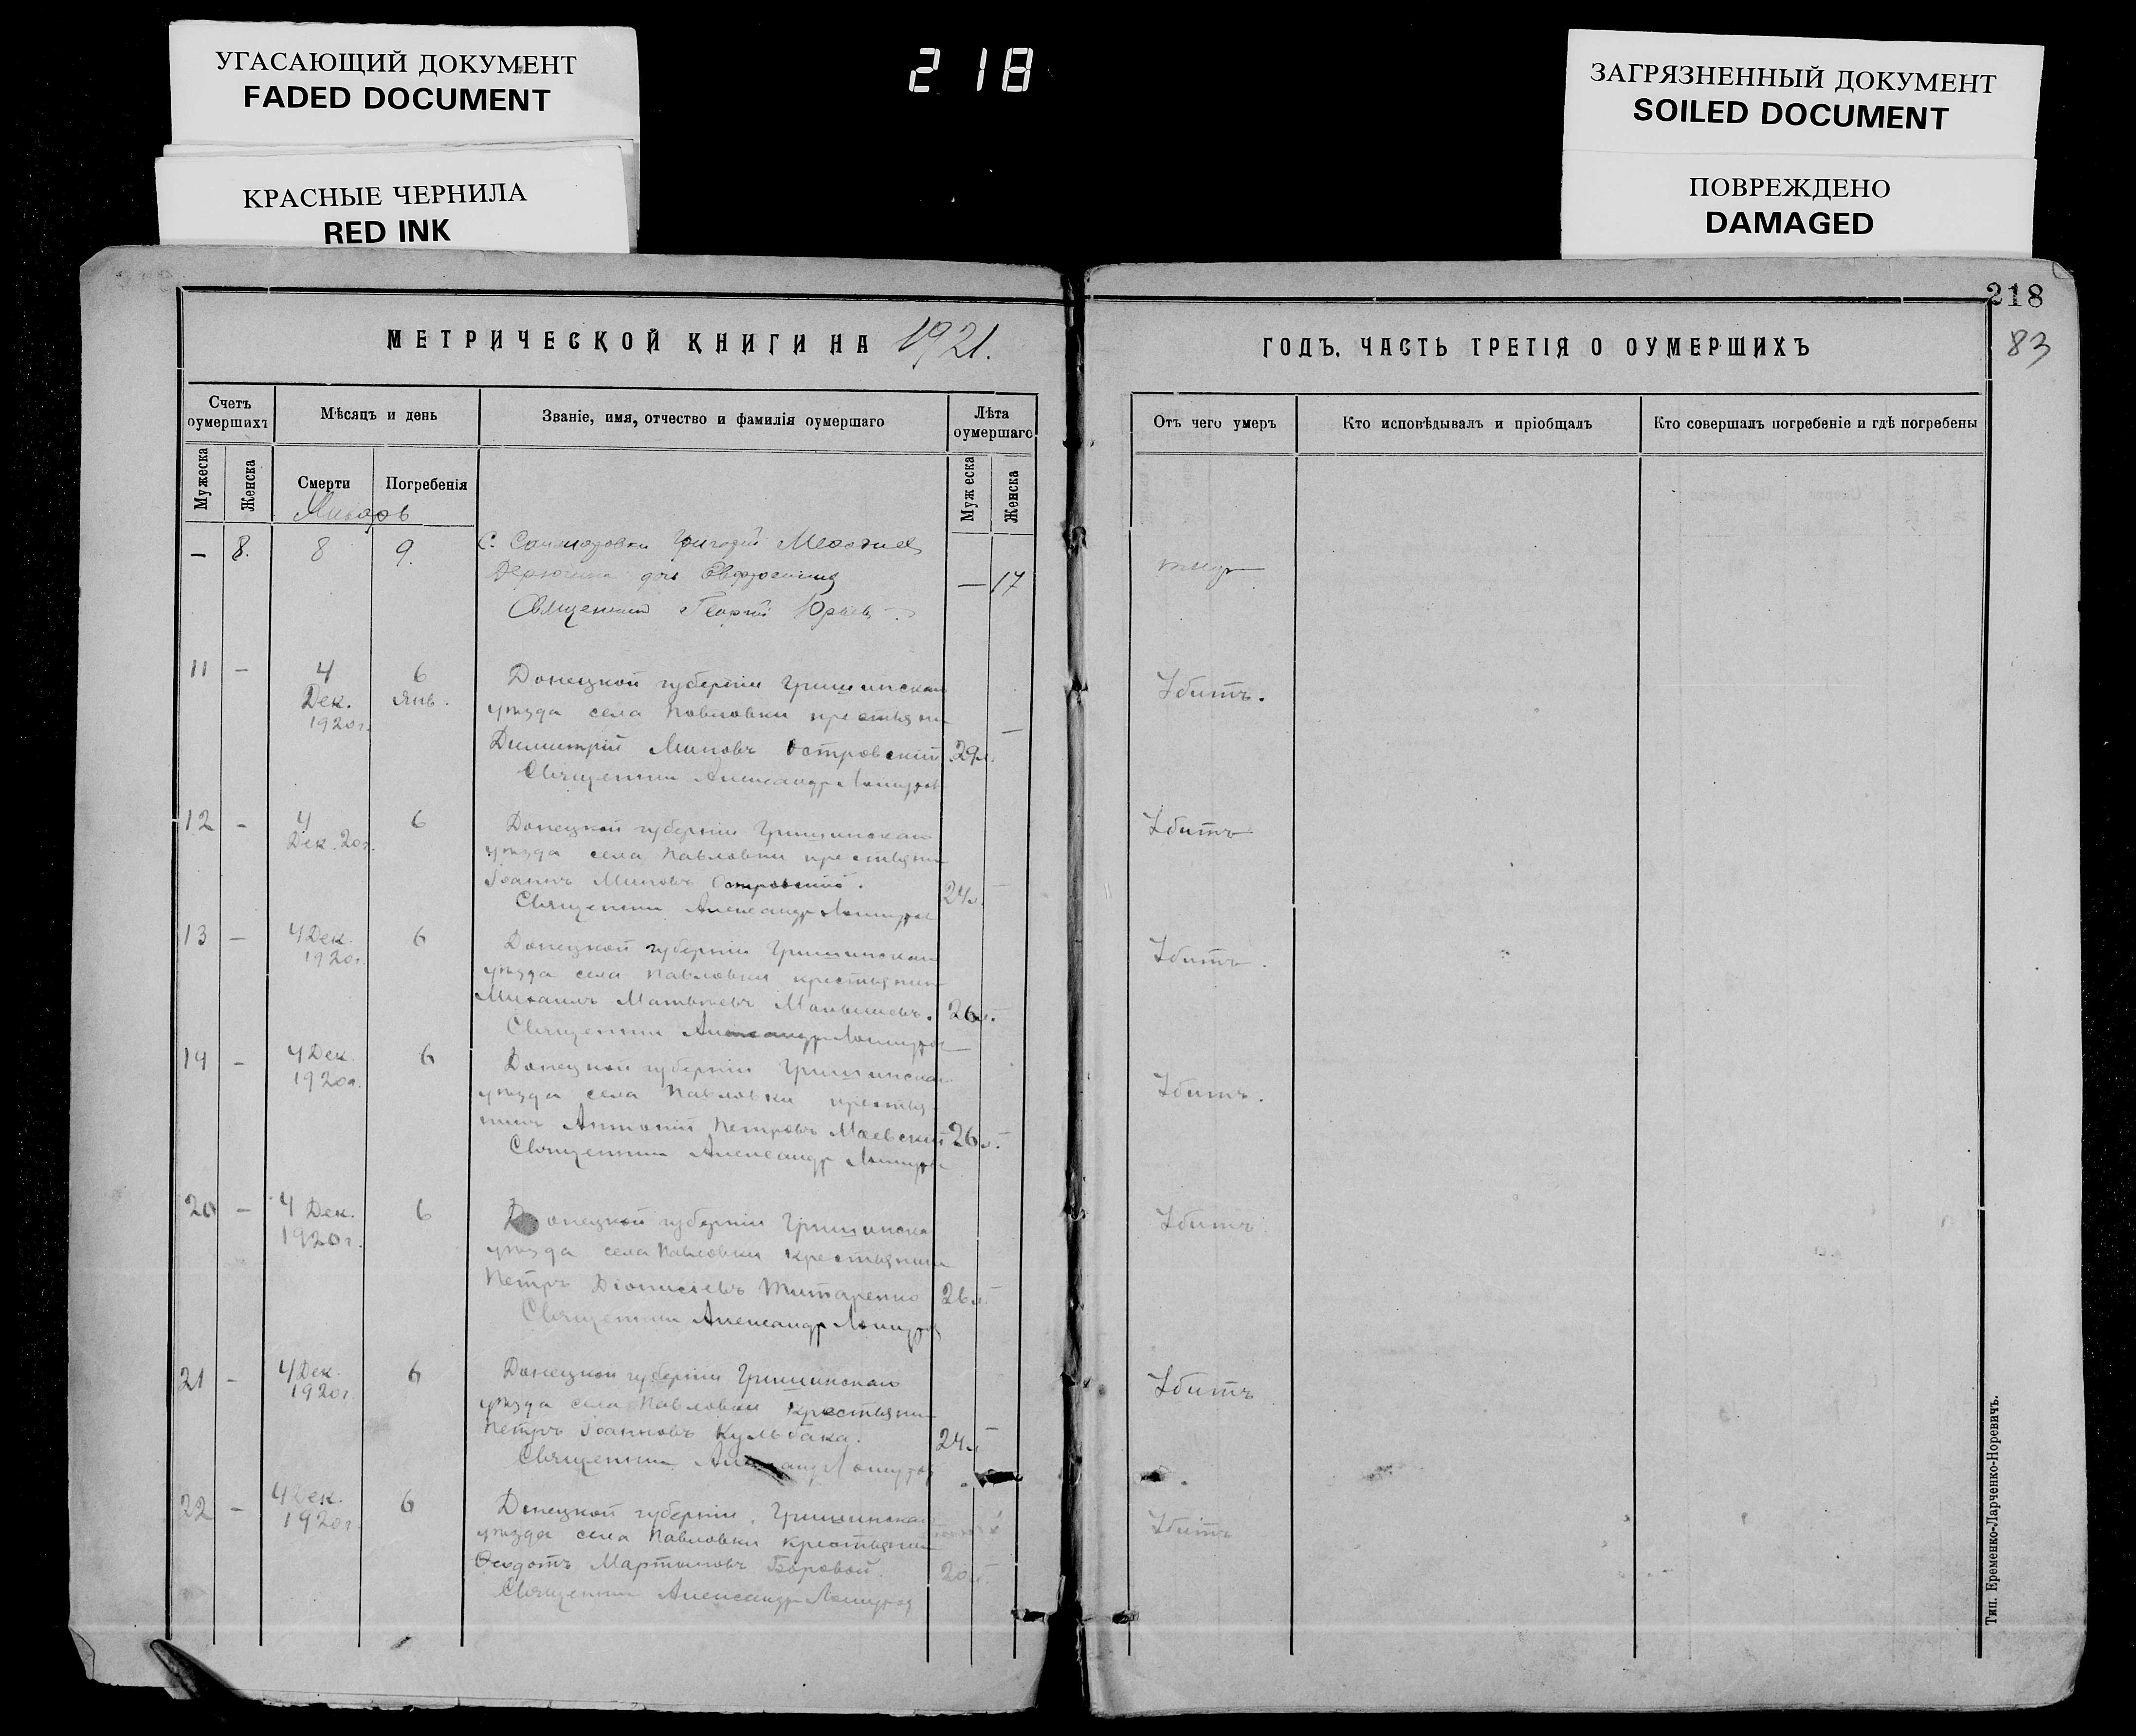 УГАСАЮЩИЙ ДОКУМЕНТ
FADED DOCUMENT
КРАСНЫЕ ЧЕРНИЛА
RED INK
218
ЗАГРЯЗНЕННЫЙ ДОКУМЕНТ
SOILED DOCUMENT
ПОВРЕЖДЕНО
DAMAGED
МЕТРИЧЕСКОЙ КНИГИ НА 1921.
Счетъ оумершихъ
Мѣсяцъ и день
Званіе, имя, отчество и фамилія оумершаго
Лѣта оумершаго
Мужеска
Женска
Смерти
Погребенія
Мужеска
Женска
Январь
— 8. 8 9.
с. Григорій
дочь Евфросинія — 17
Священник Георгій Юрьев
11 — 4 6 Донецкой губерніи Гришинскаго
Дек. Янв. уѣзда села Павловки крестьянин
1920 г. Димитрій Миновъ Островскій 29 л. —
Священник Александр
12 - 4 6 Донецкой губерніи Гришинскаго
Дек. 20 г. уѣзда села Павловки крестьянин
Іоаннъ Миновъ Островскій. 24 л. —
Священник Александр
13 — 4 Дек. 6 Донецкой губерніи Гришинскаго
1920 г. уѣзда села Павловки крестьянин
Михаилъ Матвѣевъ 26 л. —
Священник Александр
19 — 4 Дек. 6 Донецкой губерніи Гришинскаго
1920 г. уѣзда села Павловки крестья-
нинъ Антоній Петровъ Маевскій 26 л. —
Священник Александр
20 — 4 Дек. 6 Донецкой губерніи Гришинска
1920 г. уѣзда села Павловки крестьянин
Петръ Діонисіевъ Титаренко 26 л. —
Священник Александр
21 - 4 Дек. 6 Донецкой губерніи Гришинскаго
1920 г. уѣзда села Павловки крестьянин
Петръ Іоанновъ Кульбака. 24 л —
Священник
22 - 4 Дек. 6 Донецкой губерніи, Гришинскаго
1920 г. уѣзда села Павловки крестьянин
Ѳеодотъ Мартиновъ Боровой. 20 л. —
Священник Александр
218
83
ГОДЪ. ЧАСТЬ ТРЕТІЯ О ОУМЕРШИХЪ
Отъ чего умеръ
Кто исповѣдывалъ и пріобщалъ
Кто совершалъ погребеніе и гдѣ погребены
тиф
Убитъ.
Убитъ
Убитъ.
Убитъ.
Убитъ
Убитъ
Убитъ
Тип. Еременко-Ларченко-Норевичъ.